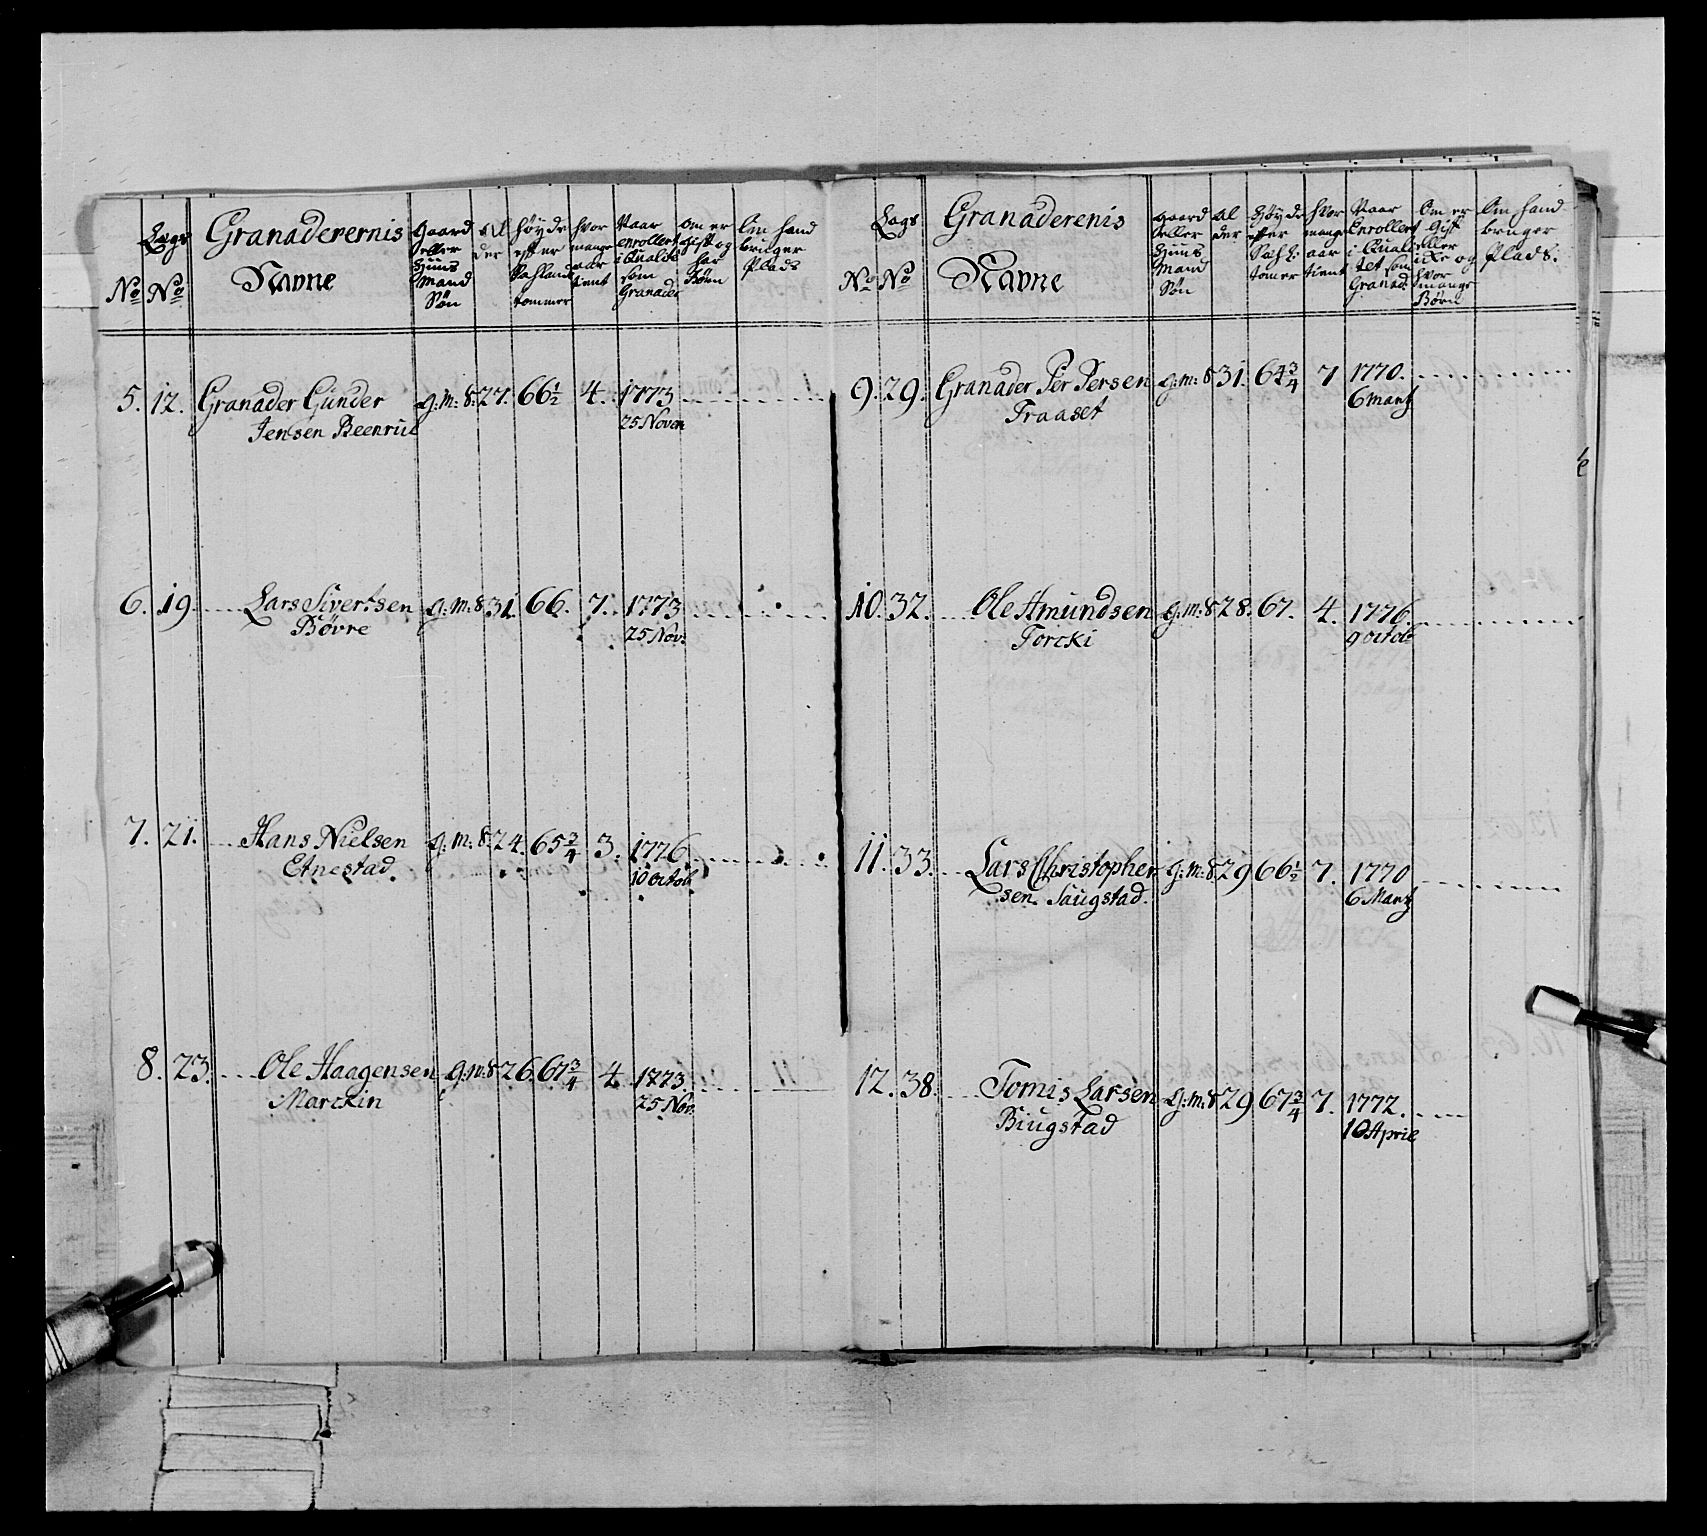 No
Lags No
Granaderernis Navne
Gaard eller Huus Mand Søn
Alder
høyde efter Sahlands tommer
hvor mange aar tient
Naar enrollert i Qualite som Granader
om er gift og har Børn
Om hand bruger Plads
5. 12. Granader Gunder g: m: S: 27. 66 1/2 4. 1773
Jensen Beenrud 25 Novem
6. 19. Lars Sivertsen g: m: S 31. 66. 7. 1773
Bøvre 25 Nov:
7. 21. Hans Nielsen g: m: S: 24. 65 3/4 3. 1776
Etnestad. 10 octob
8. 23. Ole Haagensen g: m: S 26. 67 3/4 4. 1773.
Marckin 25 Nov.
No
Lags No
Granaderenis Navne
Gaard eller Huus Mand Søn
Alder
Høyde efter Sahl: tomer
hvor mange aar tient
Naar Enrollert i Qualitet som Granad:
Om er Gift eller icke og hvor mange Børn
Om hand bruger Plads.
9. 29. Granader Per Persen g: m: S 31. 64 3/4 7 1770.
Traaset 6 Martz
10. 32. Ole Amundsen g: m: S 28. 67. 4. 1776.
Torcki 9 octob
11. 33. Lars Christopher g: m: S 29 66 1/2 7. 1770
sen Saugstad. 6 Martz
12. 38. Tomis Larsen g: m: S 29 67 3/4 7. 1772.
Biugstad 10 April